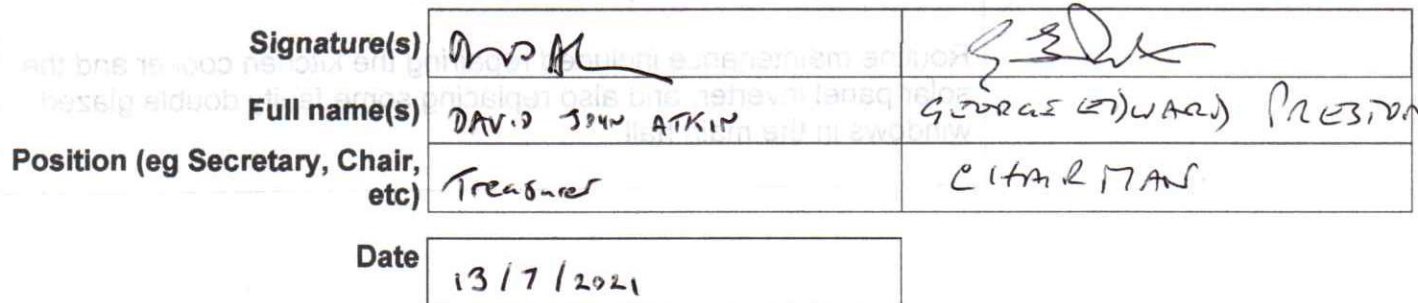 Signature(s)
Full name(s) DAVID JOHN ATKIN GEORGE EDWARD PRESTON
Position (eg Secretary, Chair, etc) Treasurer CHAIRMAN
Date 13/7/2021